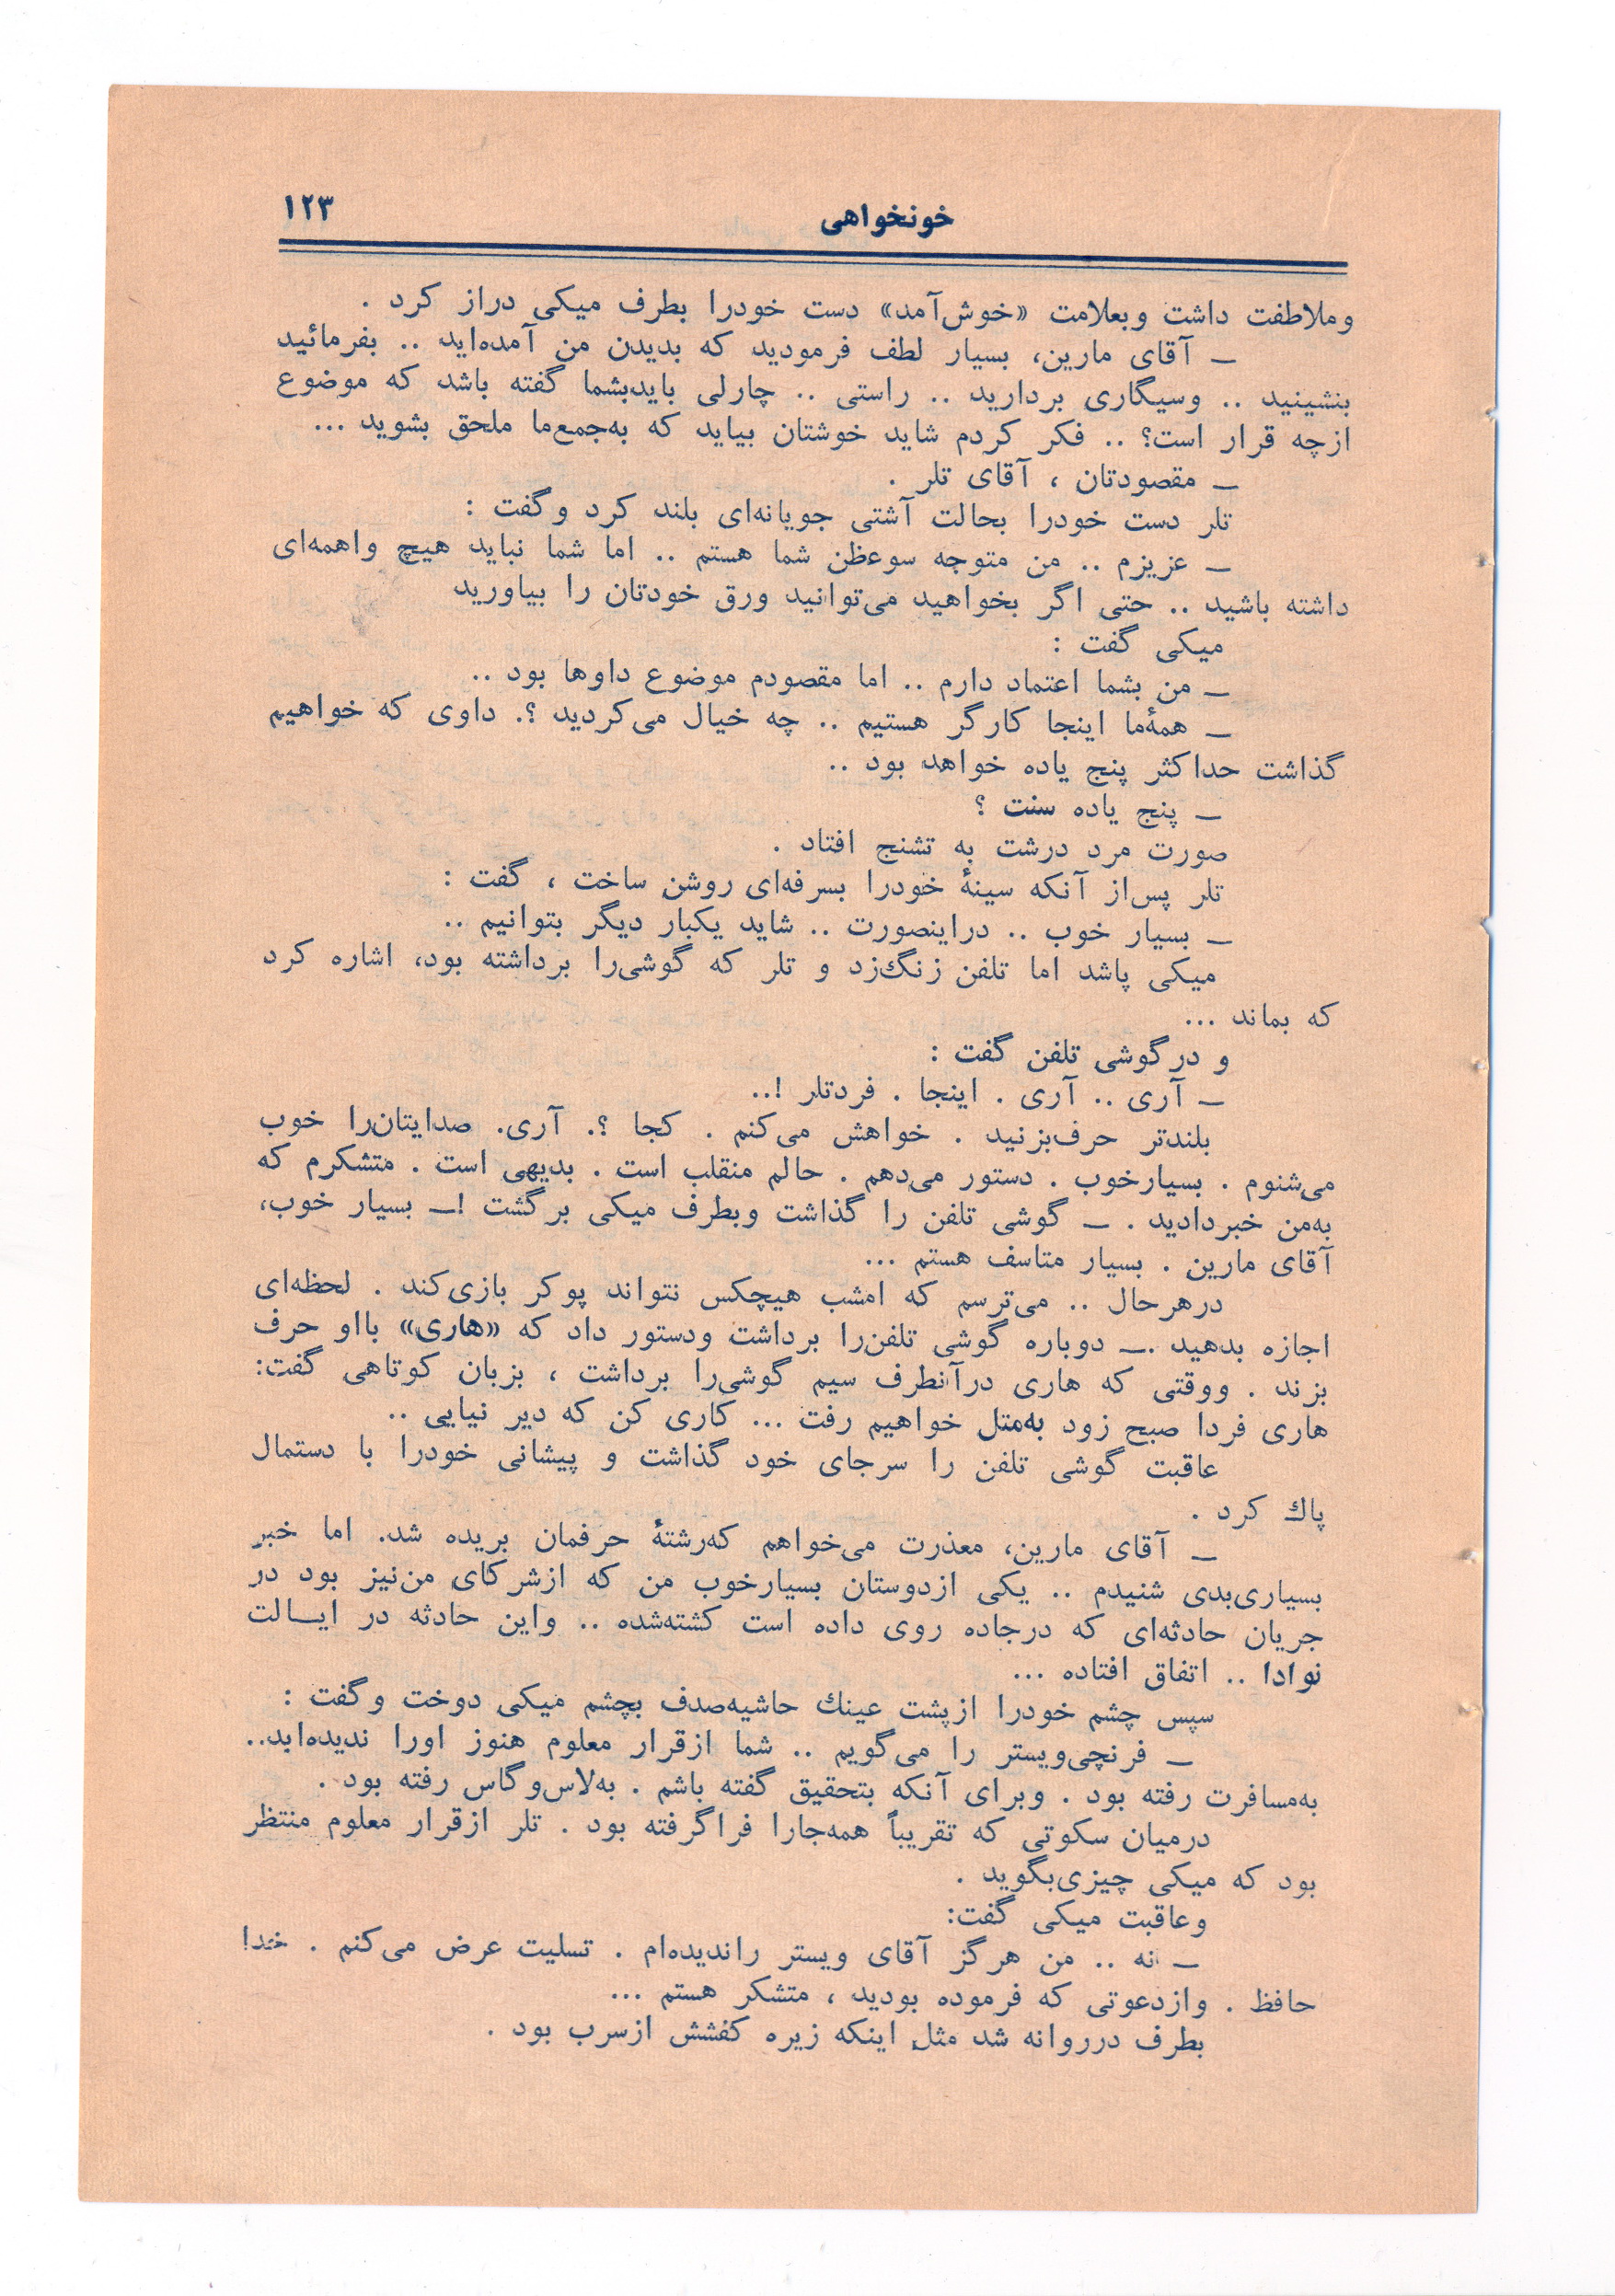 خونخواهی
۱۲۳
وملاطفت داشت وبعلامت «خوش‌آمد» دست خودرا بطرف میکی دراز کرد .
ـ آقای مارین، بسیار لطف فرمودید که بدیدن من آمده‌اید .. بفرمائید
بنشینید .. وسیگاری بردارید .. راستی .. چارلی بایدبشما گفته باشد که موضوع
ازچه قرار است؟ .. فکر کردم شاید خوشتان بیاید که به‌جمع‌ما ملحق بشوید ...
ـ مقصودتان ، آقای تلر .
تلر دست خودرا بحالت آشتی جویانه‌ای بلند کرد وگفت :
ـ عزیزم .. من متوجه سوءظن شما هستم .. اما شما نباید هیچ واهمه‌ای
داشته باشید .. حتی اگر بخواهید می‌توانید ورق خودتان را بیاورید
میکی گفت :
ـ من بشما اعتماد دارم .. اما مقصودم موضوع داوها بود ..
ـ همهٔما اینجا کارگر هستیم .. چه خیال می‌کردید ؟. داوی که خواهیم
گذاشت حداکثر پنج یاده خواهد بود ..
ـ پنج یاده سنت ؟
صورت مرد درشت به تشنج افتاد .
تلر پس‌از آنکه سینهٔ خودرا بسرفه‌ای روشن ساخت ، گفت :
ـ بسیار خوب .. دراینصورت .. شاید یکبار دیگر بتوانیم ..
میکی پاشد اما تلفن زنگ‌زد و تلر که گوشی‌را برداشته بود، اشاره کرد
که بماند ...
و درگوشی تلفن گفت :
ـ آری .. آری . اینجا . فردتلر !..
بلندتر حرف‌بزنید . خواهش می‌کنم . کجا ؟. آری. صدایتان‌را خوب
می‌شنوم . بسیارخوب . دستور می‌دهم . حالم منقلب است . بدیهی است . متشکرم که
به‌من خبردادید . ـ گوشی تلفن را گذاشت وبطرف میکی برگشت !ـ بسیار خوب،
آقای مارین . بسیار متاسف هستم ...
درهرحال .. می‌ترسم که امشب هیچکس نتواند پوکر بازی‌کند . لحظه‌ای
اجازه بدهید .ـ دوباره گوشی تلفن‌را برداشت ودستور داد که «هاری» بااو حرف
بزند . ووقتی که هاری درآنطرف سیم گوشی‌را برداشت ، بزبان کوتاهی گفت:
هاری فردا صبح زود به‌متل خواهیم رفت ... کاری کن که دیر نیایی ..
عاقبت گوشی تلفن را سرجای خود گذاشت و پیشانی خودرا با دستمال
پاك کرد .
ـ آقای مارین، معذرت می‌خواهم که‌رشتهٔ حرفمان بریده شد. اما خبر
بسیاری‌بدی شنیدم .. یکی ازدوستان بسیارخوب من که ازشرکای من‌نیز بود در
جریان حادثه‌ای که درجاده روی داده است کشته‌شده .. واین حادثه در ایـالت
نوادا .. اتفاق افتاده ...
سپس چشم خودرا ازپشت عینك حاشیه‌صدف بچشم میکی دوخت وگفت :
ـ فرنچی‌ویستر را می‌گویم .. شما ازقرار معلوم هنوز اورا ندیده‌اید..
به‌مسافرت رفته بود . وبرای آنکه بتحقیق گفته باشم . به‌لاس‌وگاس رفته بود .
درمیان سکوتی که تقریباً همه‌جارا فراگرفته بود . تلر ازقرار معلوم منتظر
بود که میکی چیزی‌بگوید .
وعاقبت میکی گفت:
ـ نه .. من هرگز آقای ویستر راندیده‌ام . تسلیت عرض می‌کنم . خدا!
حافظ . وازدعوتی که فرموده بودید ، متشکر هستم ...
بطرف درروانه شد مثل اینکه زیره کفشش ازسرب بود .